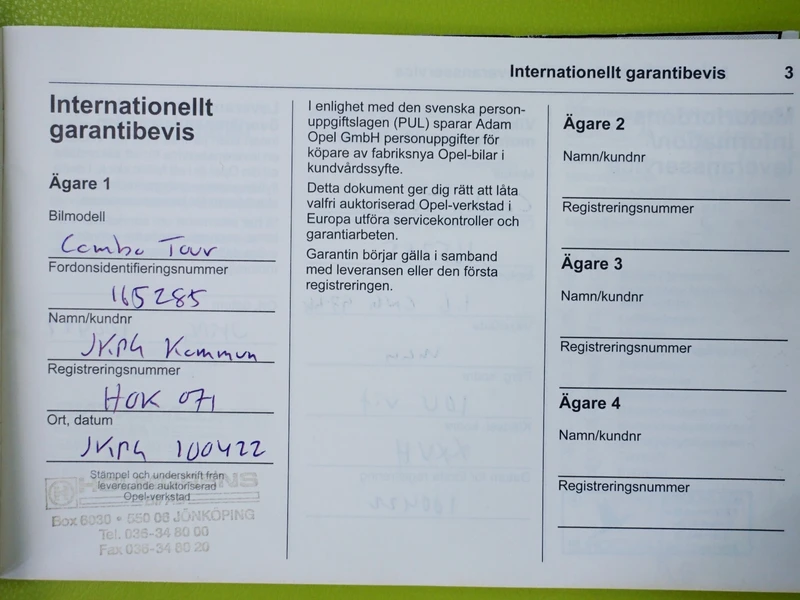 Internationellt garantibevis 3
Internationellt
garantibevis
Ägare 1
Bilmodell
Combo Tour
Fordonsidentifieringsnummer
165285
Namn/kundnr
JKPG Kommun
Registreringsnummer
HOK 071
Ort, datum
JKPG 100422
Stämpel och underskrift från
levererande auktoriserad
Opel-verkstad
Box 8030 • 550 08 JÖNKÖPING
Tel. 036-34 80 00
Fax 036-34 80 20
I enlighet med den svenska person-
uppgiftslagen (PUL) sparar Adam
Opel GmbH personuppgifter för
köpare av fabriksnya Opel-bilar i
kundvårdssyfte.
Detta dokument ger dig rätt att låta
valfri auktoriserad Opel-verkstad i
Europa utföra servicekontroller och
garantiarbeten.
Garantin börjar gälla i samband
med leveransen eller den första
registreringen.
Ägare 2
Namn/kundnr
Registreringsnummer
Ägare 3
Namn/kundnr
Registreringsnummer
Ägare 4
Namn/kundnr
Registreringsnummer